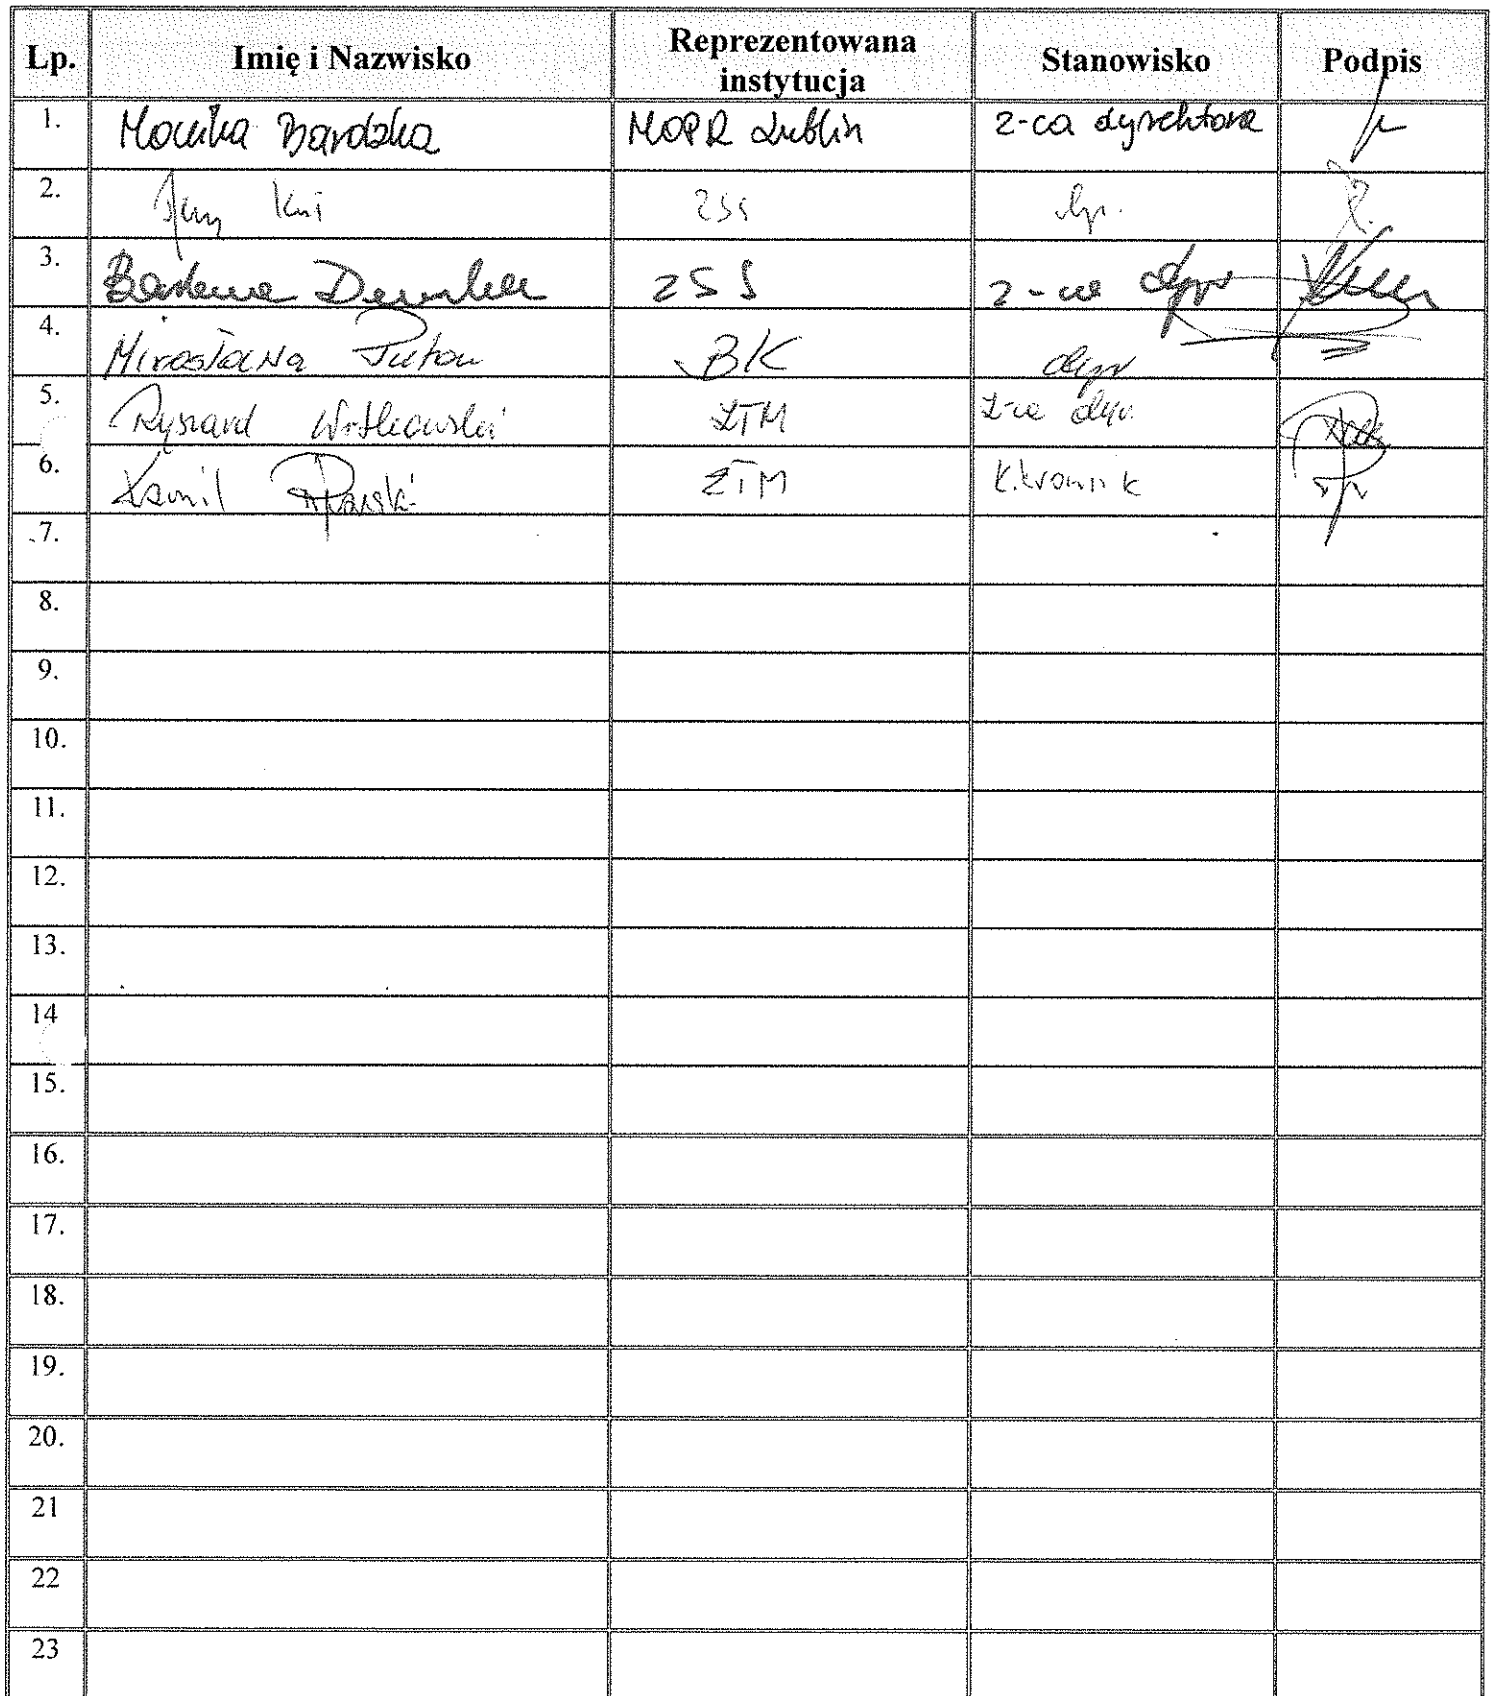 Lp. Imię i Nazwisko Reprezentowana instytucja Stanowisko Podpis
1. Monika Bardzka MOPR Lublin z-ca dyrektora
2. Jerzy
3. ZSS z-ca dyr
4. Mirosława Puton BK dyr
5. Ryszard ZTM z-ca dyr.
6. Kamil ZTM Kierownik
7.
8.
9.
10.
11.
12.
13.
14
15.
16.
17.
18.
19.
20.
21
22
23